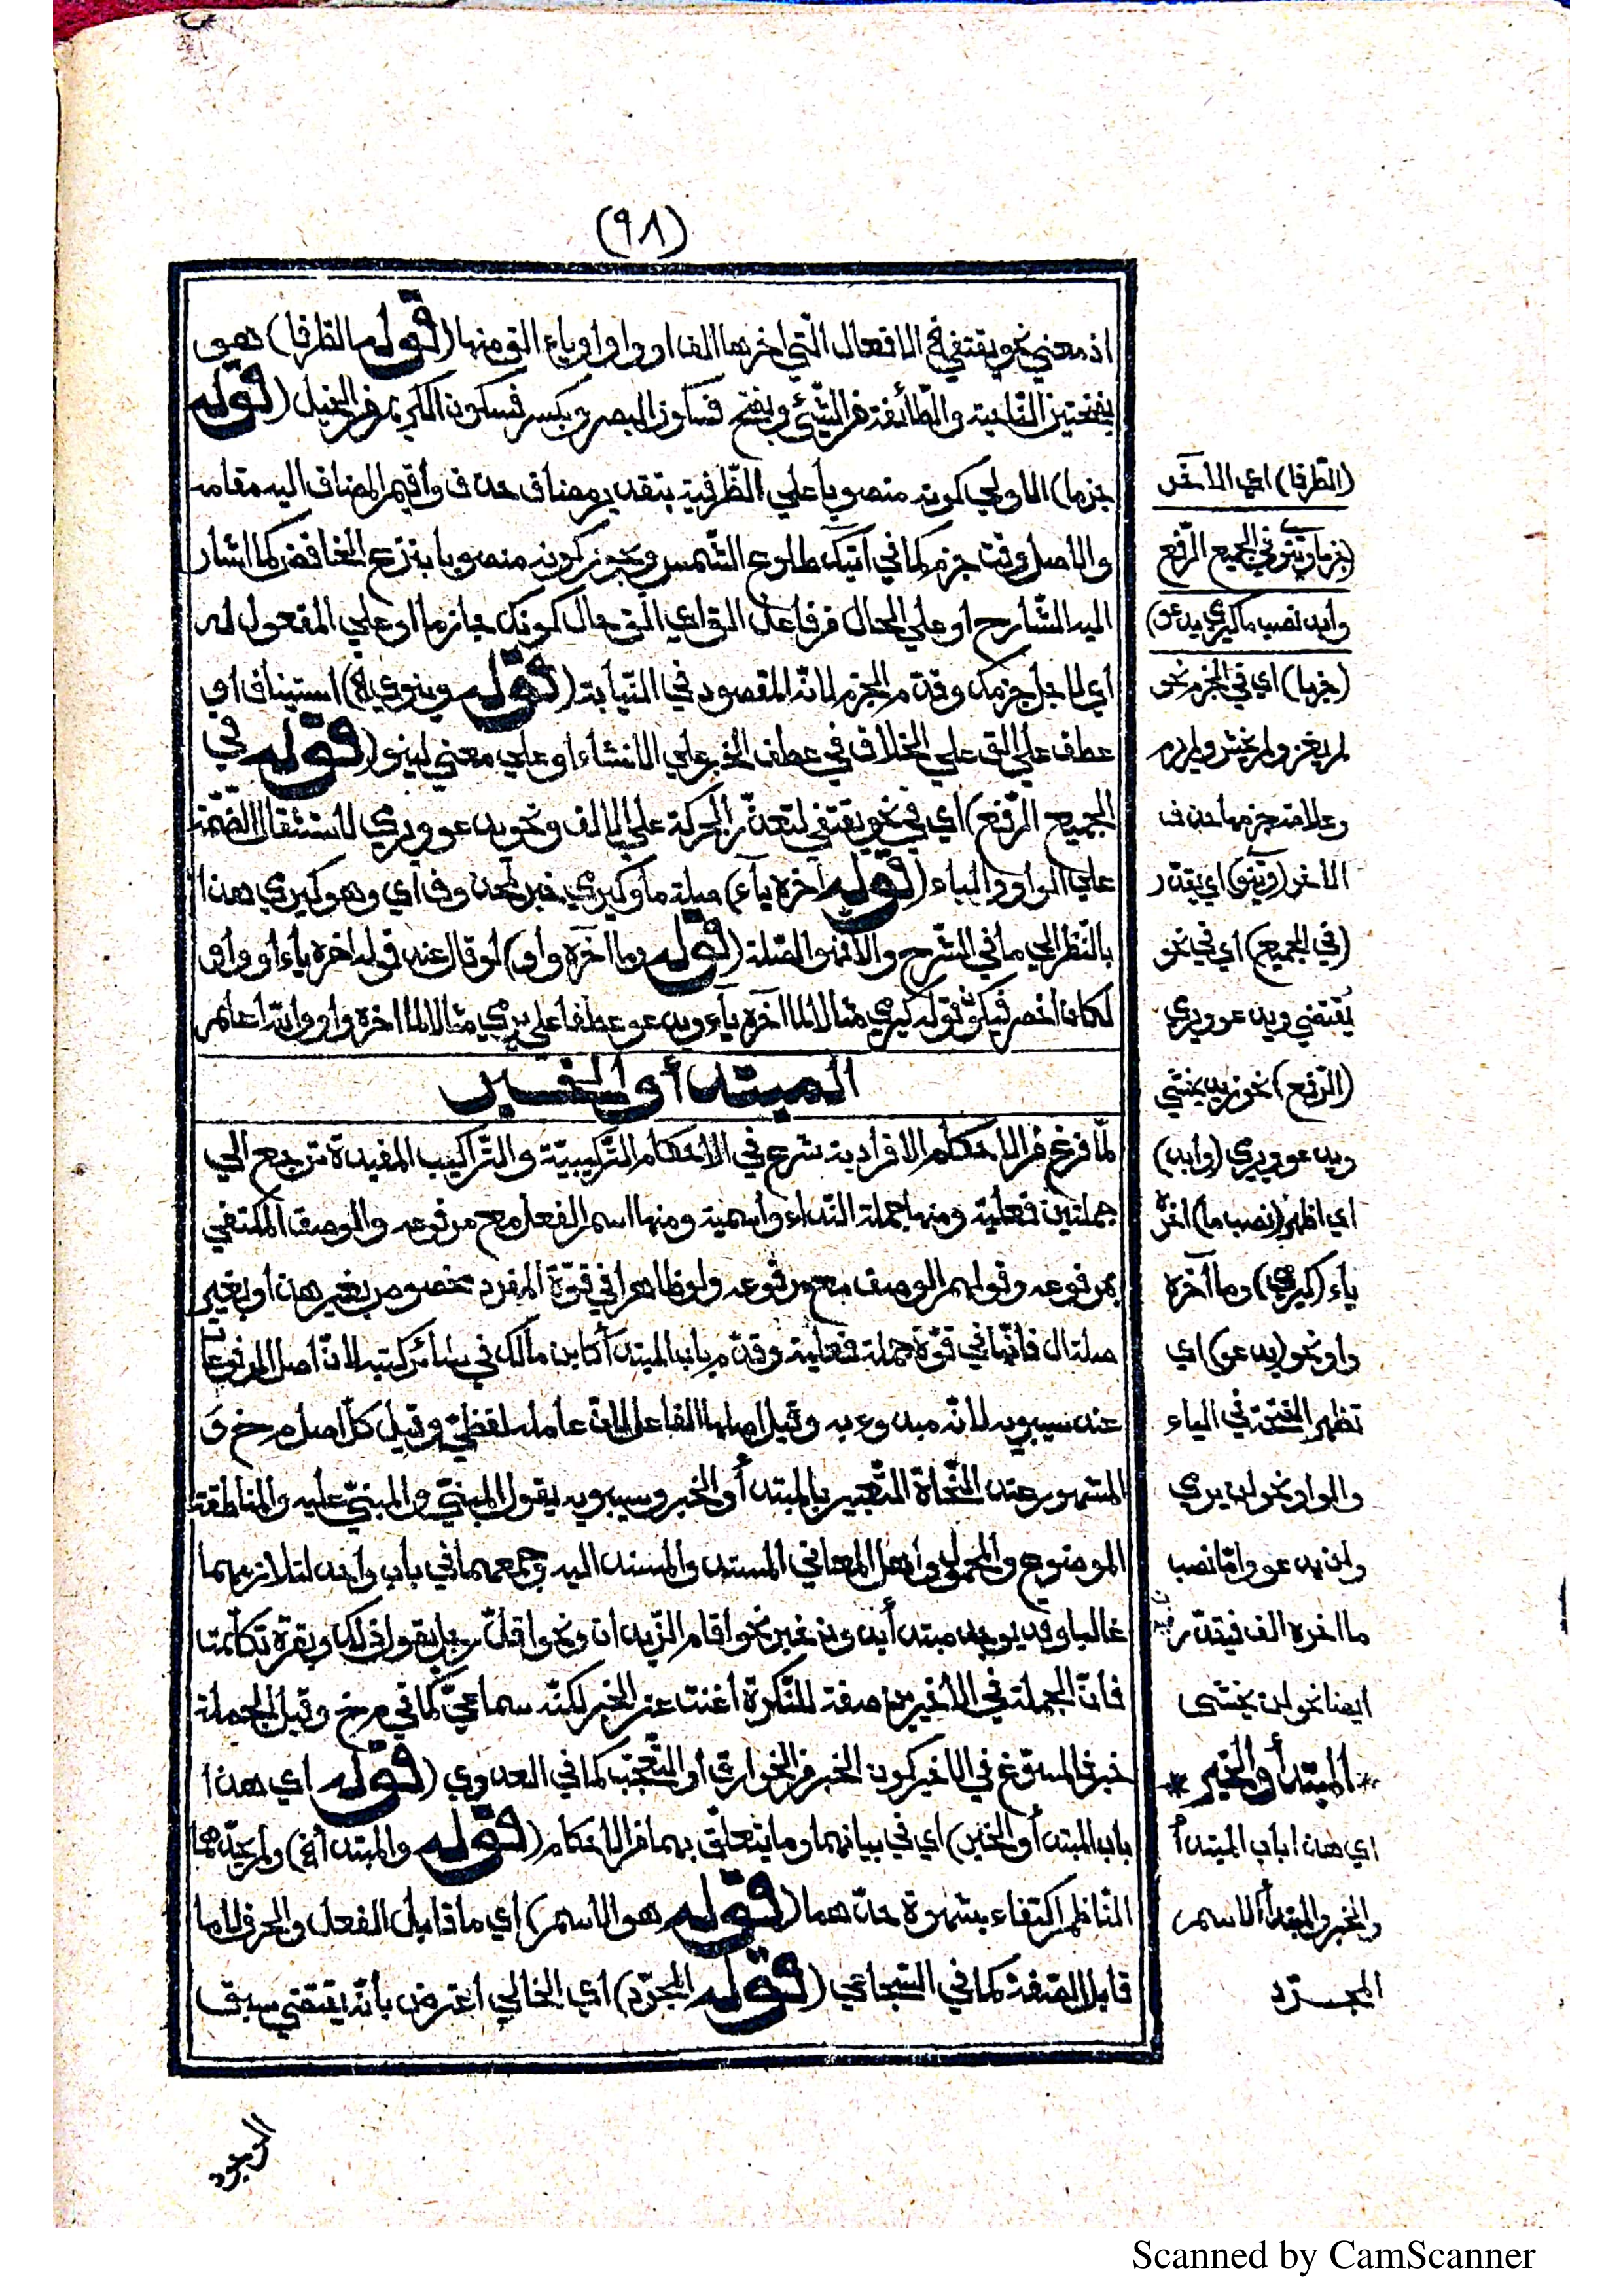 (٩٨)
اذ معني نحو يقتفي في الافعال الّتي اخرها الف او واو او ياء الق منها (قوله الطرفا) هو
بفتحتين النّاحية والطّائفة من الشّيئ وبفتح فسكون البصر وبكسر فسكون الكريم من الخيل (قوله
جزما) الاولي كونه منصوبا علي الظّرفية بتقدير مضاف حذف وأقيم المضاف اليه مقامه
والاصل وقت جزم كما في اتيك طلوع الشّمس ويجوز كونه منصوبا بنزع الخافض كما اشار
اليه الشّارح او علي الحال من فاعل الق اي الق حال كونك جازما او علي المفعول له
أي لاجل جزمك وقدّم الجزم لانّه المقصود في النّيابة (قوله وينوي الخ) استيناف او
عطف علي الق علي الخلاف في عطف الخبر علي الانشاء او علي معني لينو (قوله في
الجميع الرّفع) أي في نحو يقتفي لتعذّر الحركة علي الالف ونحو يدعو ويري لاستثقال الضّمّة
علي الواو والياء (قوله آخره ياء) صلة ما وكيري خبر لمحذوف أي وهو كيري هذا
بالنّظر الي ما في الشّرح والا فهو الصّلة (قوله وما آخره واو) لو قال عند قوله اخره ياء أو واو
لكان أخصر فيكون قوله كيري مثالا لما آخره ياء ويدعو عطفا علي يري مثالا لما اخره واو والله أعلم
المبتدأ والخبر
لمّا فرغ من الاحكام الافرادية شرع في الاحكام التّركيبيّة والتّراكيب المفيدة ترجع الي
جملتين فعلية ومنها جملة النّداء وأسمية ومنها اسم الفعل مع مرفوعه والوصف المكتفي
بمرفوعه وقولهم الوصف مع مرفوعه ولو ظاهرا في قوّة المفرد مخصوص بغير هذا وبغير
صلة ال فانّها في قوّة جملة فعلية وقدّم باب المبتدأ كابن مالك في سائر كتبه لانّ أصل المرفوعات
عند سيبويه لانّه مبدوء به وقيل اصلها الفاعل لانّ عامله لفظيّ وقيل كلّ اصل م خ و
المشهور عند النّحاة التّعبير بالمبتدأ والخبر وسيبويه يقول المبنيّ والمبنيّ عليه والمناطقة
الموضوع والمحمول وأهل المعاني المسند والمسند اليه وجمعهما في باب واحد لتلازمهما
غالبا وقد يوجد مبتدأ بدون خبر نحو أقام الزّيدان ونحو أقلّ رجل يقول ذلك وبقرة تكلّمت
فانّ الجملة في الأخيرين صفة للنّكرة أغنت عن الخبر لكنّه سماعيّ كما في م خ وقيل الجملة
خبر والمسوّغ في الاخير كون الخبر من الخوارق أو التّعجّب كما في العدوي (قوله اي هذا
باب المبتدأ والخبر) اي في بيانهما وما يتعلّق بهما من الاحكام (قوله والمبتدأ الخ) ولم يحدّهما
النّاظم اكتفاء بشهرة حدّهما (قوله هو الاسم) أي ما قابل الفعل والحرف لا ما
قابل الصّفة كما في السّجاعي (قوله المجرّد) أي الخالي اعترض بأنّه يقتضي سبق
(الطّرفا) اي الآخر
(جزما وينو في الجميع الرّفع
وأبد نصب ما كيري يدعو)
(جزما) اي في الجزم نحو
لم يغز ولم يخش ولم يرم
وعلامة جزمها حذف
الاخر (وينو) اي يقدّر
(في الجميع) أي في نحو
يقتضي ويدعو ويري
(الرّفع) نحو زيد يخشي
ويدعو ويري (وابد)
اي اظهر (نصب ما) اخره
ياء (كيري) وما آخره
واو نحو (يدعو) اي
تظهر الفتحة في الياء
والواو نحو لن يري
ولن يدعو وامّا نصب
ما اخره الف فيقدّر
ايضا نحو لن يخشى
* المبتدأ والخبر *
اي هذا باب المبتدأ
والخبر والمبتدأ الاسم
المجرّد